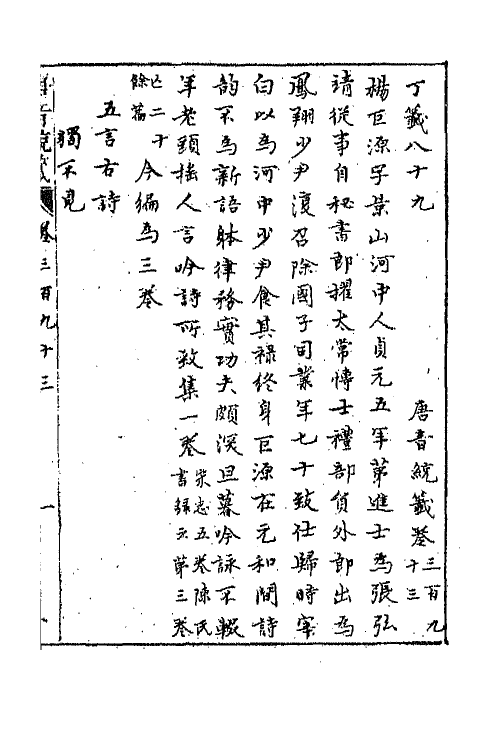 丁籤八十九　唐音統籤卷三百九十三
楊巨源字景山河中人貞元五年第進士為張弘
靖從事自秘書郎擢太常博士禮部員外郎出為
鳳翔少尹復召除國子司業年七十致仕歸時宰
白以為河中少尹食其祿終身巨源在元和間詩
韵不為新語躰律務實功夫頗深旦暮吟詠不輟
年老頭搖人言吟詩所致集一卷宋志五卷陳氏書録云第三卷
已二十餘篇今編為三卷
五言古詩
獨不見
唐音統籤　卷三百九十三　一